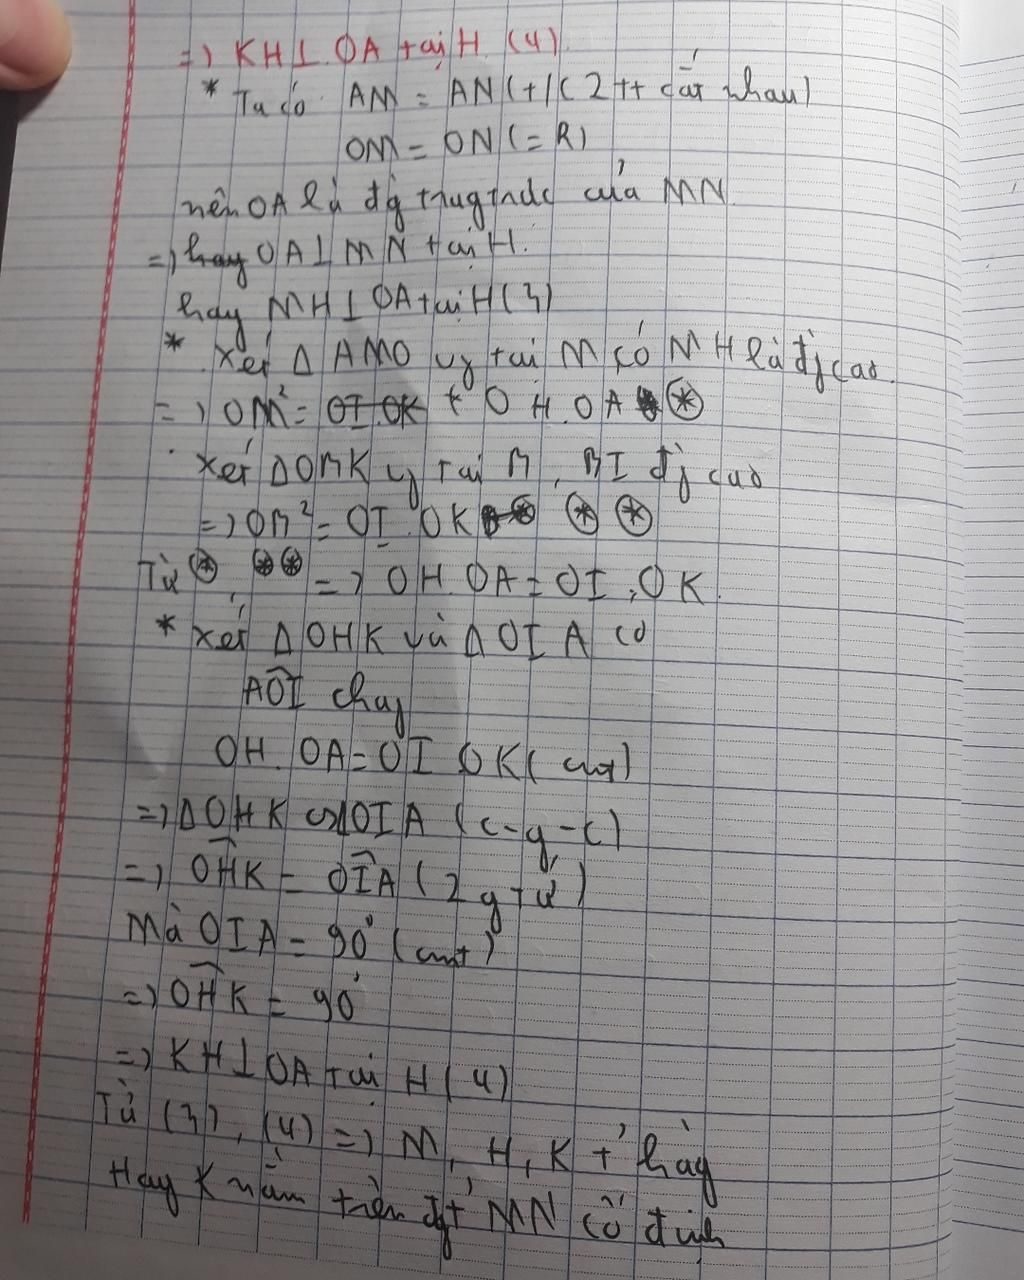 =) KH⊥OA tại H (4)
* Ta có AM = AN (t/c 2tt cắt nhau)
OM = ON (= R)
nên OA là đg trugtrực của MN
=) hay OA⊥MN tại H.
hay MH⊥OA tại H (3)
* Xét Δ AMO vg tại M có MH là đg cao
=) OM² = OI.OK + OH.OA ⊛
Xét ΔOBK vg tại B, BI đg cao
=) OB² = OI.OK ⊛ ⊛
Từ ⊛, ⊛⊛ =) OH.OA = OI.OK
* Xét ΔOHK và ΔOIA có
AÔI chug
OH.OA = OI.OK (cmt)
=) ΔOHK ∽ ΔOIA (c-g-c)
=) OĤK = OÎA (2 g t ứ)
Mà OIA = 90° (cmt)
=) OĤK = 90°
=) KH⊥OA tại H (4)
Từ (3), (4) =) M, H, K t' hàg
Hay K nằm trên đgt MN cố định